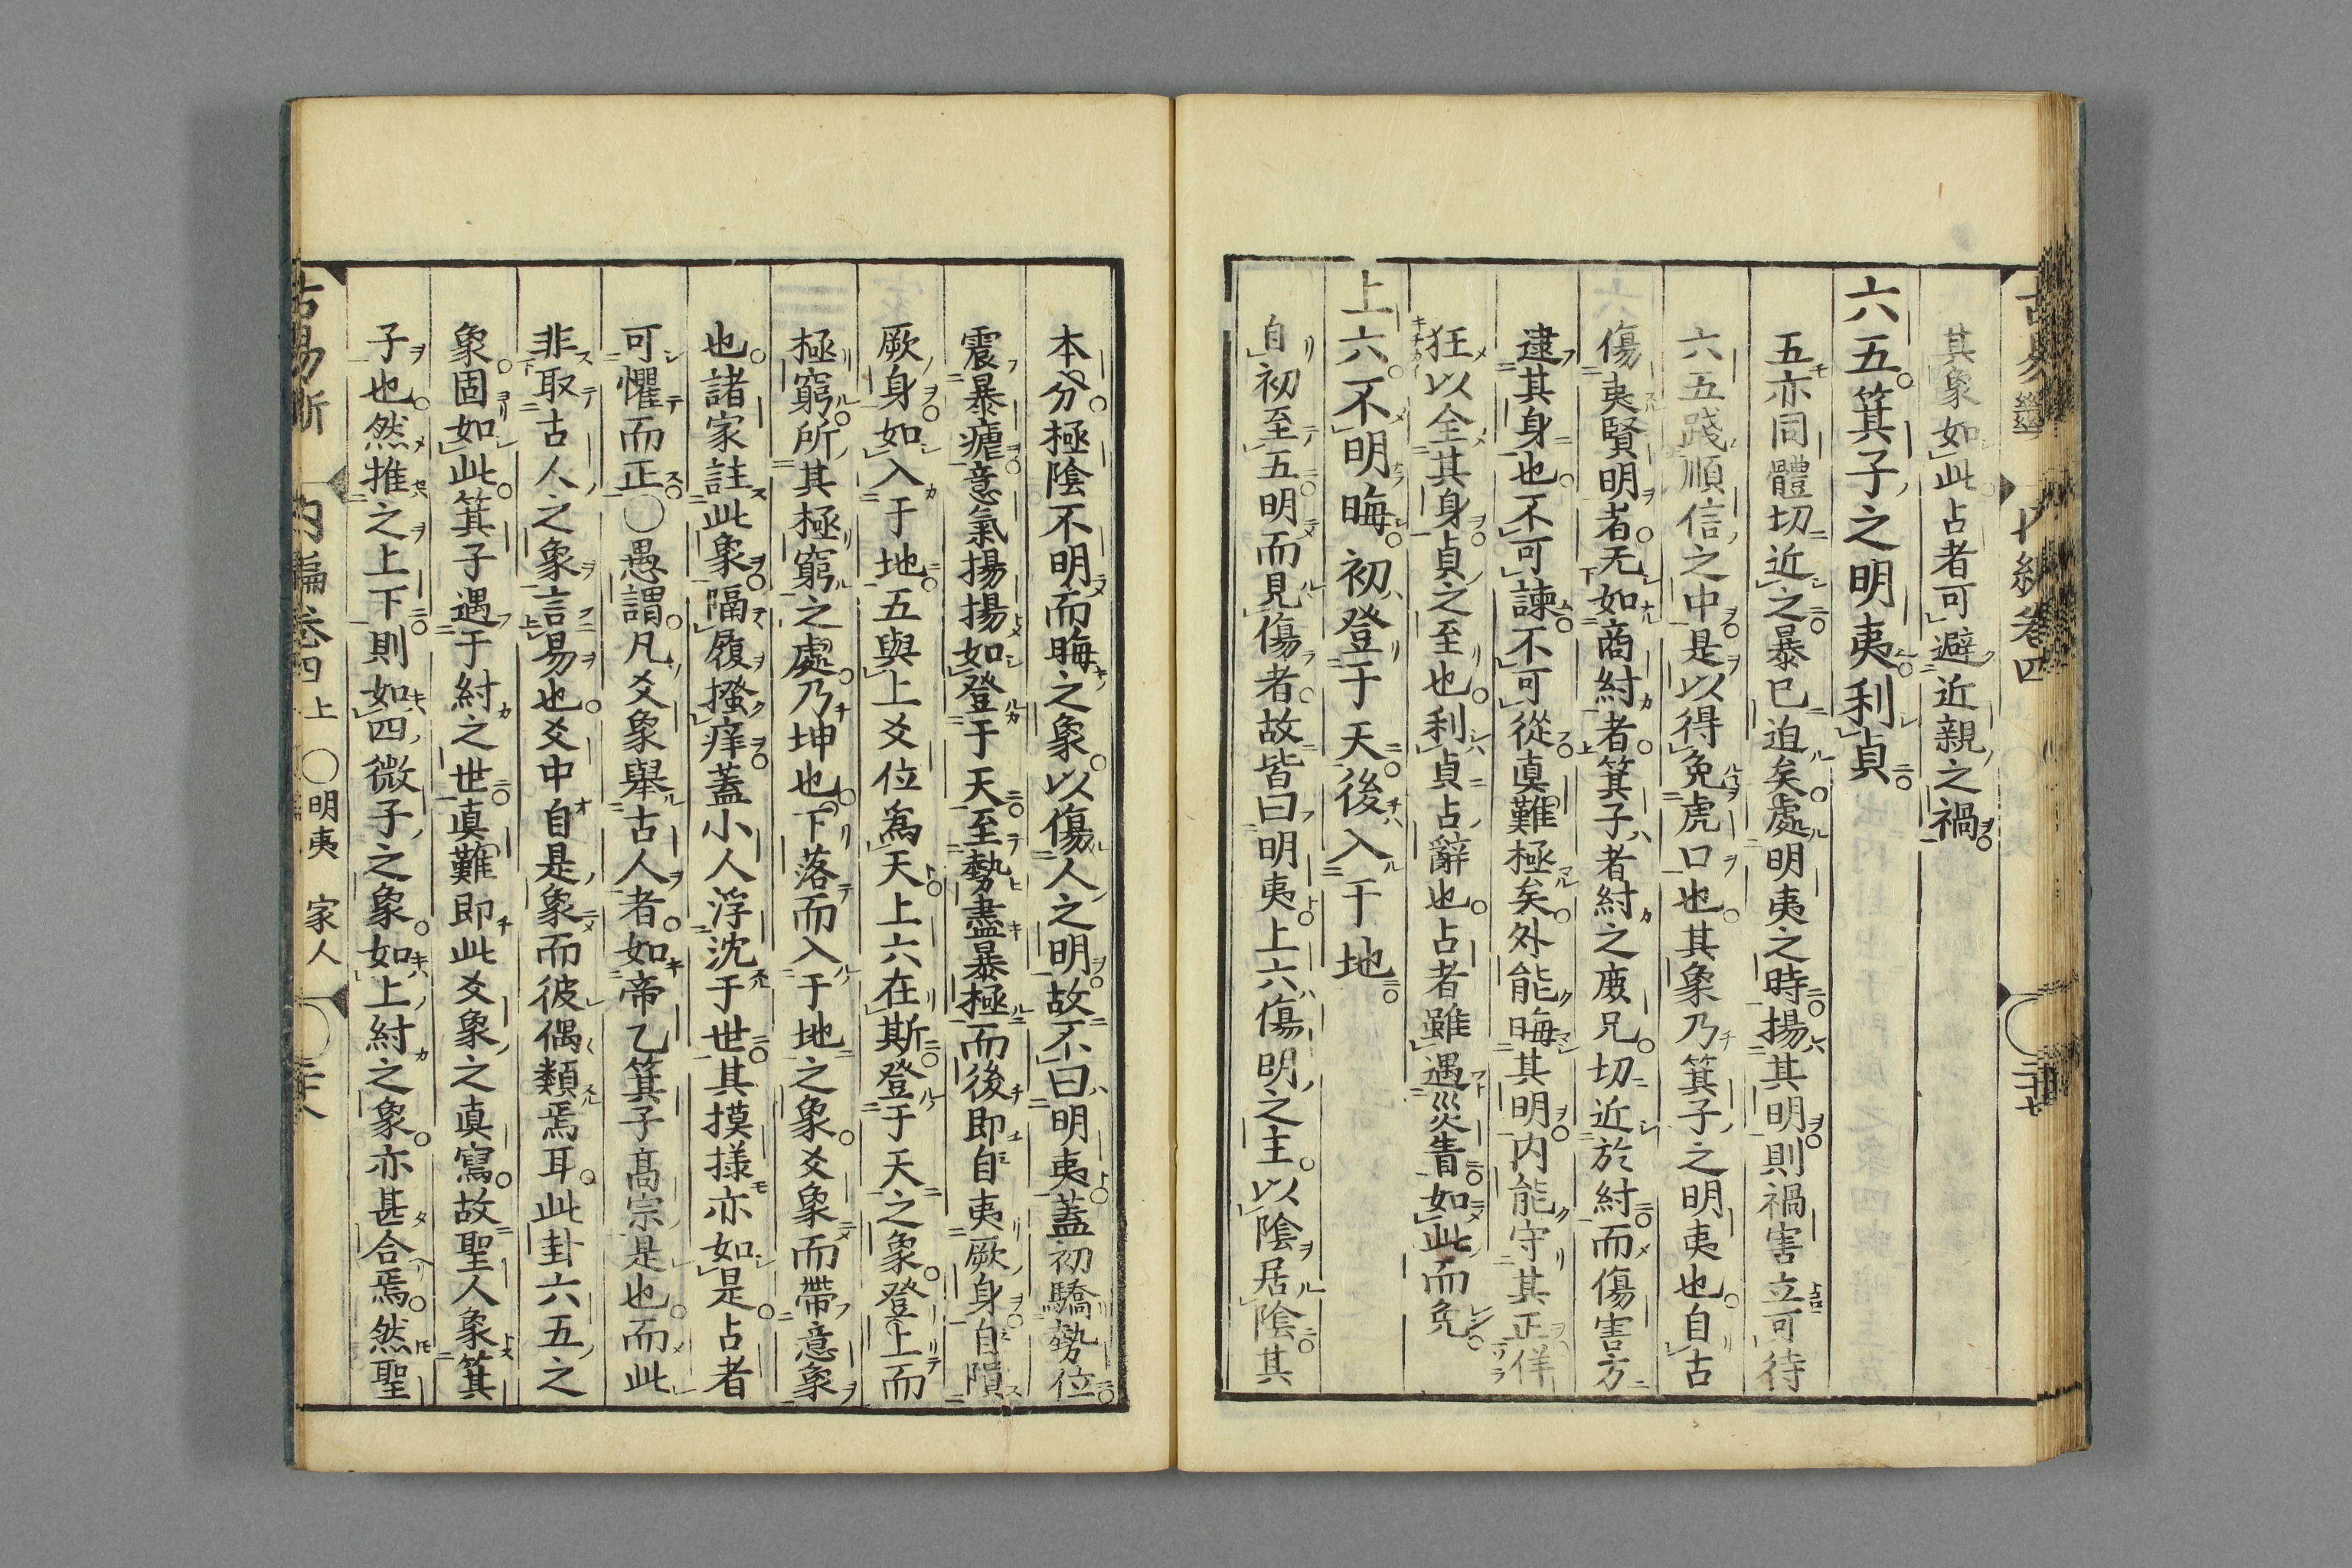 其象如此占者可避近親之禍
六五箕子之明夷利貞
五亦同體切近之暴已迫矣處明夷之時揚其明則禍害立可待
六五踐順信之中是以得免虎口也其象乃箕子之明夷也自古
傷夷賢明者无如商紂者箕子者紂之庻兄切近於紂而傷害方
逮其身也不可諫不可從真難極矣外能晦其明内能守其正佯
狂以全其身貞之至也利貞占辭也占者雖遇災眚如此而免
上六不明晦初登于天後入于地
自初至五明而見傷者故皆曰明夷上六傷明之主以陰居陰其
本分極陰不明而晦之象以傷人之明故不曰明夷蓋初驕勢位
震暴瘧意氣揚揚如登于天至勢盡暴極而後即自夷厥身自隕
厥身如入于地五與上爻位爲天上六在斯登于天之象登上而
極窮所其極窮之處乃坤也下落而入于地之象爻象而帶意象
也諸家註此象隔履搔痒蓋小人浮沈于世其摸樣亦如是占者
可懼而正〇愚謂凡爻象舉古人者如帝乙箕子高宗是也而此
非取古人之象言易也爻中自是象而彼偶類焉耳此卦六五之
象固如此箕子遇于紂之世真難即此爻象之真寫故聖人象箕
子也然推之上下則如四微子之象如上紂之象亦甚合焉然聖
古易斷 内編卷四 上 〇明夷 家人